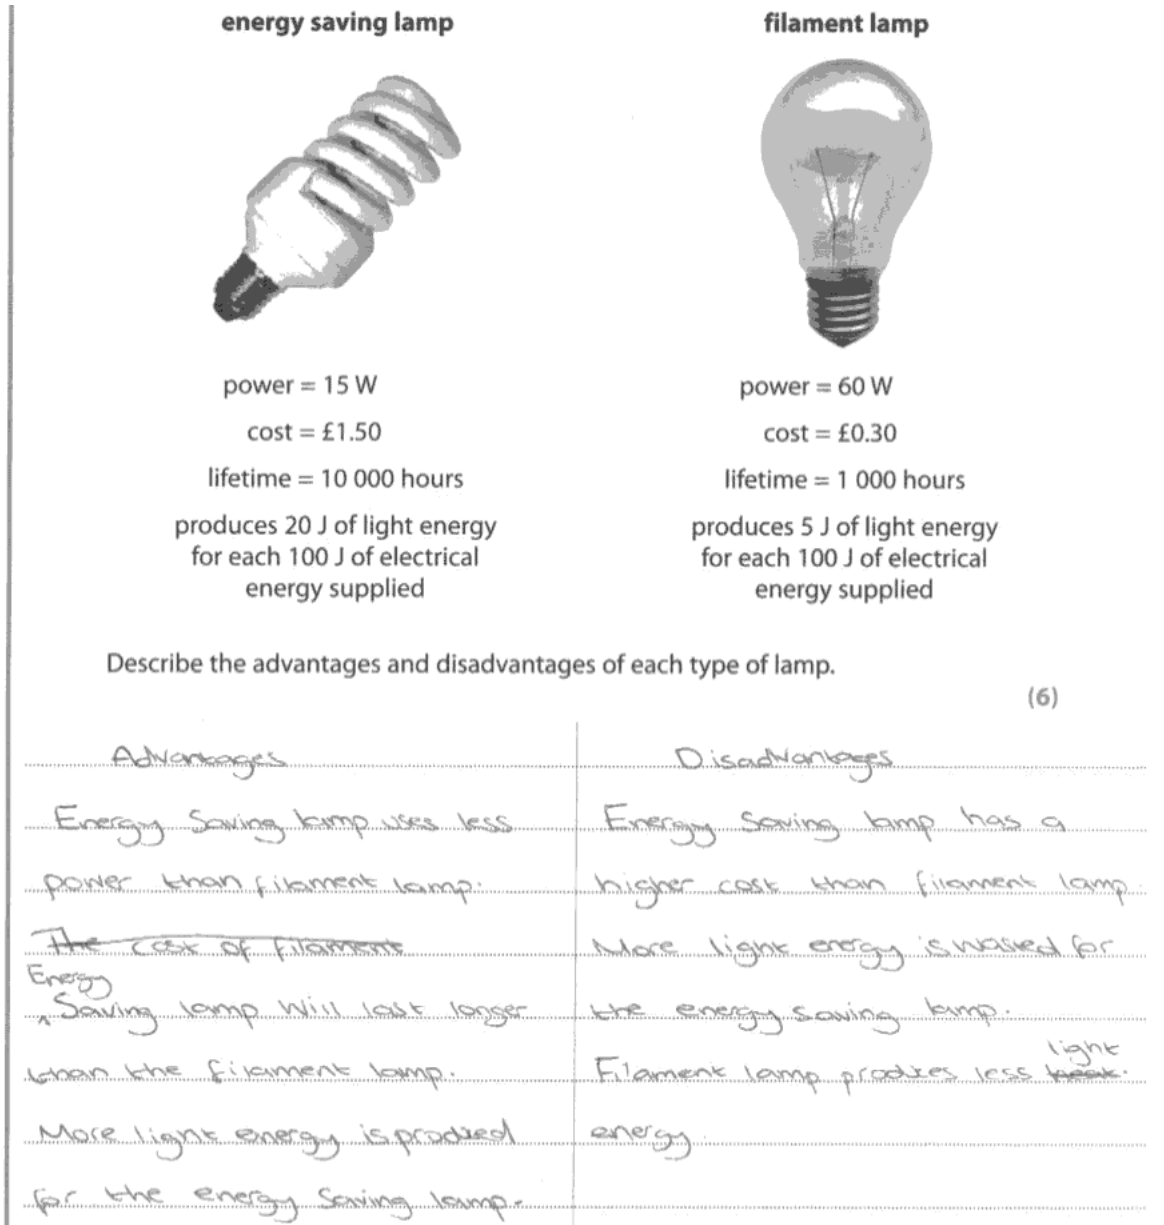 energy saving lamp
filament lamp
power = 15 W
cost = £1.50
lifetime = 10 000 hours
produces 20 J of light energy
for each 100 J of electrical
energy supplied
power = 60 W
cost = £0.30
lifetime = 1 000 hours
produces 5 J of light energy
for each 100 J of electrical
energy supplied
Describe the advantages and disadvantages of each type of lamp.
(6)
Advantages
Energy Saving lamp uses less
power than filament lamp.
The cost of filament
Energy
^ Saving lamp will last longer
than the filament lamp.
More light energy is produced
for the energy saving lamp.
Disadvantages
Energy Saving lamp has a
higher cost than filament lamp.
More light energy is wasted for
the energy saving lamp.
light
Filament lamp produces less heat.
energy.